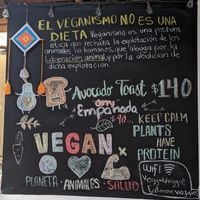 EL VEGANISMO NO ES UNA
DIETA Veganismo es una postura
ética que rechaza la explotación de los
animales no humanos, que aboga por la
Liberación animal y por la abolición de
dicha explotación.
Avocado Toast $140
Empanada
KEEP CALM
PLANTS
HAVE
PROTEIN
VEGAN
PLANETA · ANIMALES · SALUD
WiFi